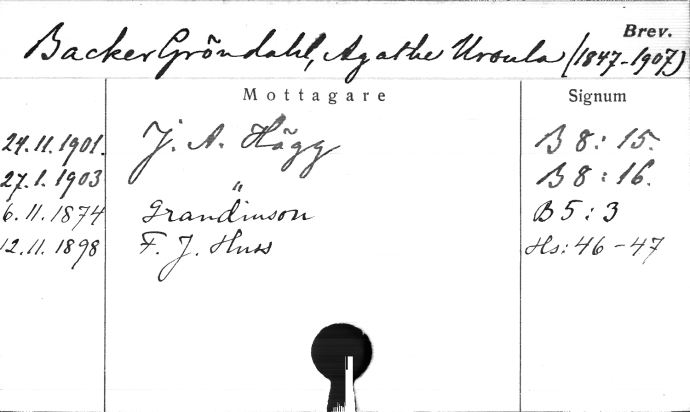 Brev.
Backer Gröndahl, Agathe Ursula (1847-1907)
Mottagare Signum
24.11.1901. J. A. Hägg B 8:15.
27.1.1903 " B 8:16.
6.11.1874 Grandinson B 5:3
12.11.1898 F. J. Huss Hs: 46-47